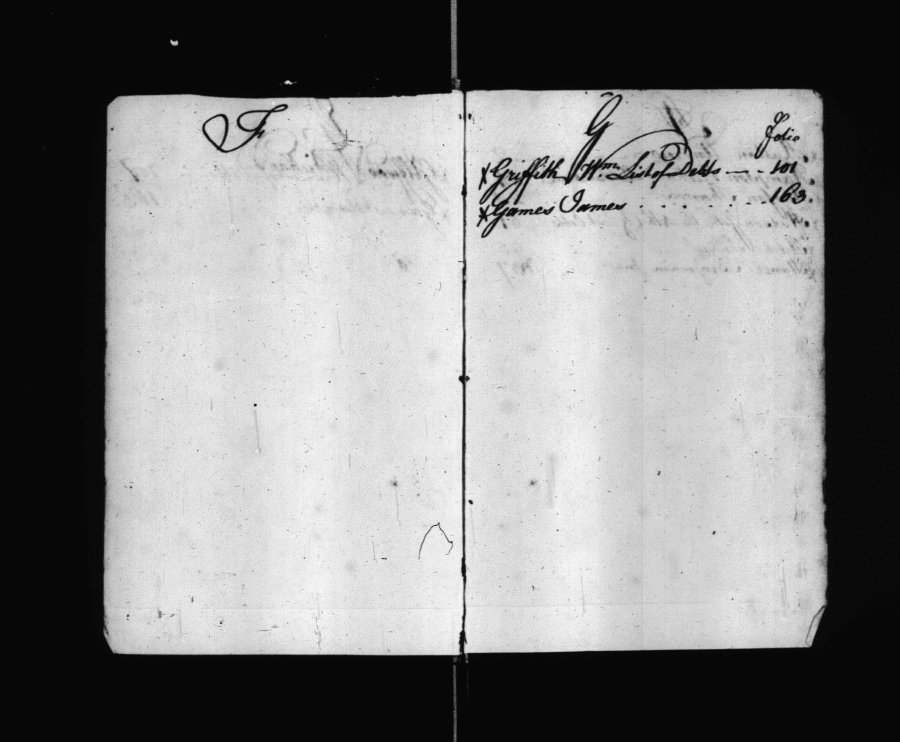 F
G
Folio
x Griffith Wm. List of Debts — - 101
x Games James . . . . . . . 163.